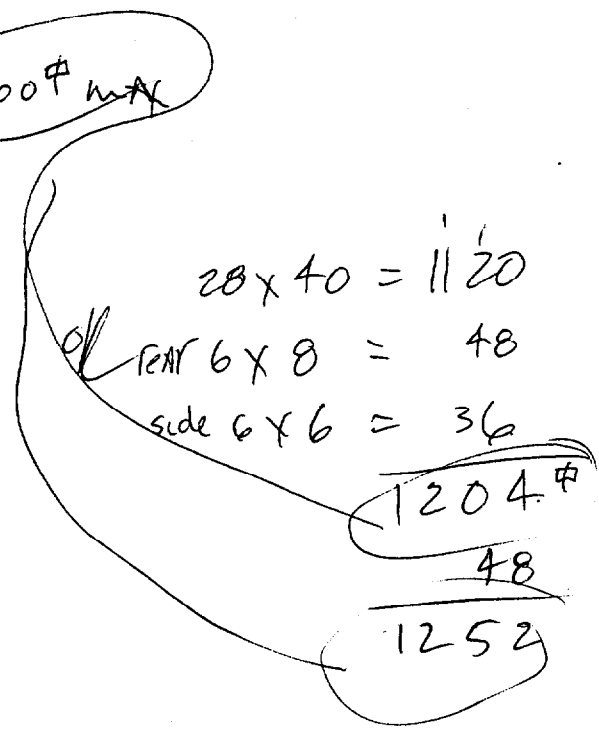 00⌽ max
28 x 40 = 1120
OK rear 6 x 8 = 48
side 6 x 6 = 36
1204⌽
48
1252